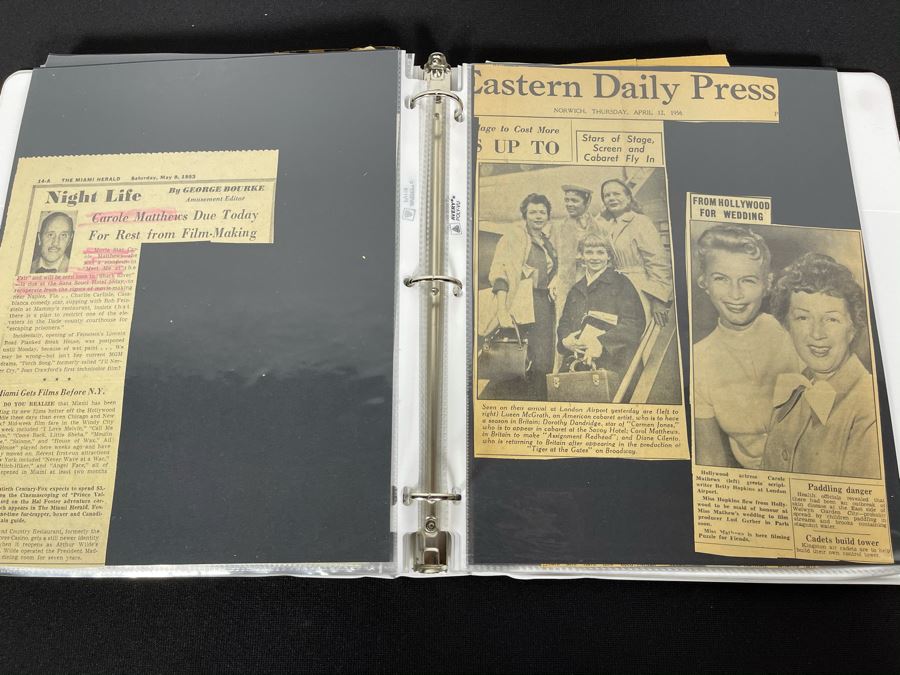 14-A THE MIAMI HERALD Saturday, May 9, 1953
Night Life
By GEORGE BOURKE
Amusement Editor
Carole Matthews Due Today
For Rest from Film-Making
"Meet Me at the
Fair" and will be seen soon in "Shark River"
is due at the Sans Souci Hotel today, to
recuperate from the rigors of movie making
near Naples, Fla. . . Charlie Carlisle, Cas-
blanca comedy star, supping with Bob Fein-
stein at Mammy's restaurant, insists that
there is a plan to restrict one of the ele-
vators in the Dade county courthouse for
"escaping prisoners."
Incidentally, opening of Feinstein's Lincoln
Road Planked Steak House, was postponed
until Monday, because of wet paint . . . We
may be wrong—but isn't Joy current MGM
drama, "Torch Song," formerly called "I'll Nev-
er Cry," Joan Crawford's first technicolor film?
* * *
Miami Gets Films Before N.Y.
DO YOU REALIZE that Miami has been
ting its new films better off the Hollywood
these days than even Chicago and New
mid-week film fare in the Windy City
week included "I Love Melvin," "Call Me
"Come Back, Little Sheba," "Moulin
"Salome," and "House of Wax." All
played here weeks ago and have
moved on. Recent first-run attractions
York included "Never Wave at a Wac,"
Hitch-Hiker," and "Angel Face," all of
opened in Miami at least two months
Century-Fox expects to spend $3,-
the Cinemascoping of "Prince Val-
based on the Hal Foster adventure car-
ch appears in The Miami Herald. Fox
one-time fur-trapper, boxer and Canadi-
ain guide.
and Country Restaurant, formerly the
Casino, gets a still newer identity
when it reopens as Arthur Wilde's
Wilde operated the President Mad-
dining room for seven years.
AVERY®
Eastern Daily Press
NORWICH, THURSDAY, APRIL 12, 1956
to Cost More
S UP TO
Stars of Stage,
Screen and
Cabaret Fly In
Seen on their arrival at London Airport yesterday are (left to
right) Lueen McGrath, an American cabaret artist, who is to have
a season in Britain; Dorothy Dandridge, star of "Carmen Jones,"
who is to appear in cabaret at the Savoy Hotel; Carol Matthews,
in Britain to make "Assignment Redhead"; and Diane Cilento,
who is returning to Britain after appearing in the production of
"Tiger at the Gates" on Broadway.
FROM HOLLYWOOD
FOR WEDDING
Hollywood actress Carole
Mathews (left) greets script-
writer Betty Hopkins at London
Airport.
Miss Hopkins flew from Holly-
wood to be maid of honour at
Miss Mathews's wedding to film
producer Lud Gerber in Paris
soon.
Miss Mathews is here filming
Puzzle for Fiends.
Padding danger
Health officials revealed that
there had been an outbreak of
skin disease at the East side of
Welwyn Garden City—probably
spread by children paddling in
streams and brooks containing
stagnant water.
Cadets build tower
Kingston air cadets are to help
build their own control tower.